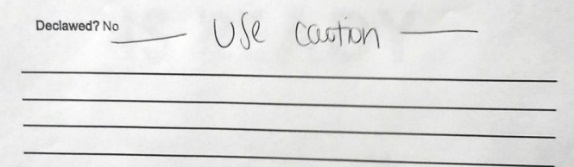 Declawed? No — Use caution —